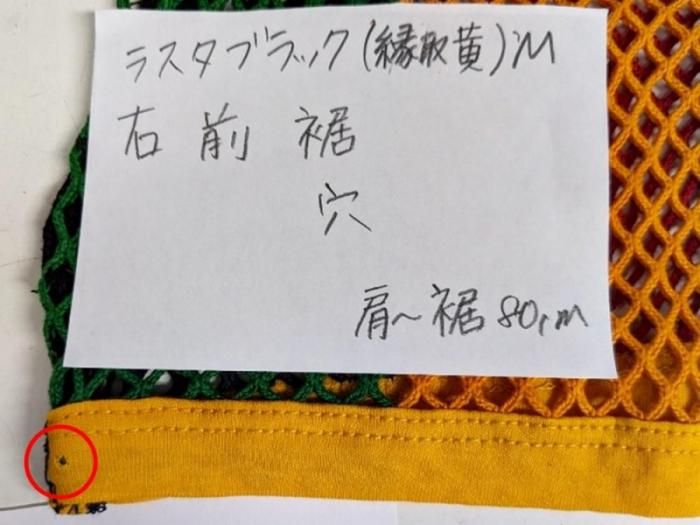 ラスタブラック(縁取黄)M
右前裾
穴
肩~裾80cm